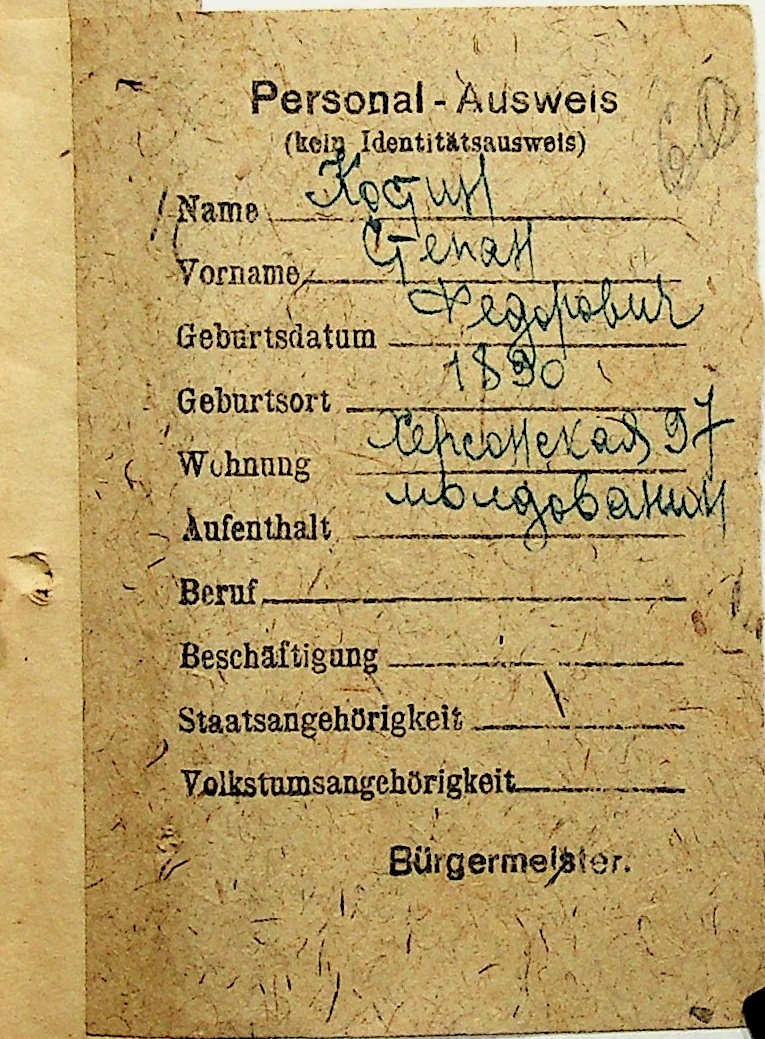 Personal - Ausweis
(kein Identitätsausweis)
60
Name Костин
Vorname Степан
Федорович
Geburtsdatum
1890
Geburtsort
Херсонская 97
Wohnung
молдованин
Aufenthalt
Beruf
Beschäftigung
Staatsangehörigkeit
Volkstumsangehörigkeit
Bürgermeister.